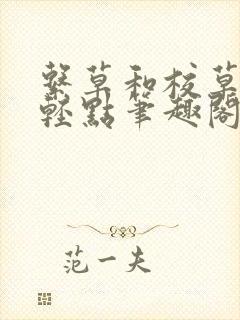 繫草和校草
輕點筆趣閣
范一夫